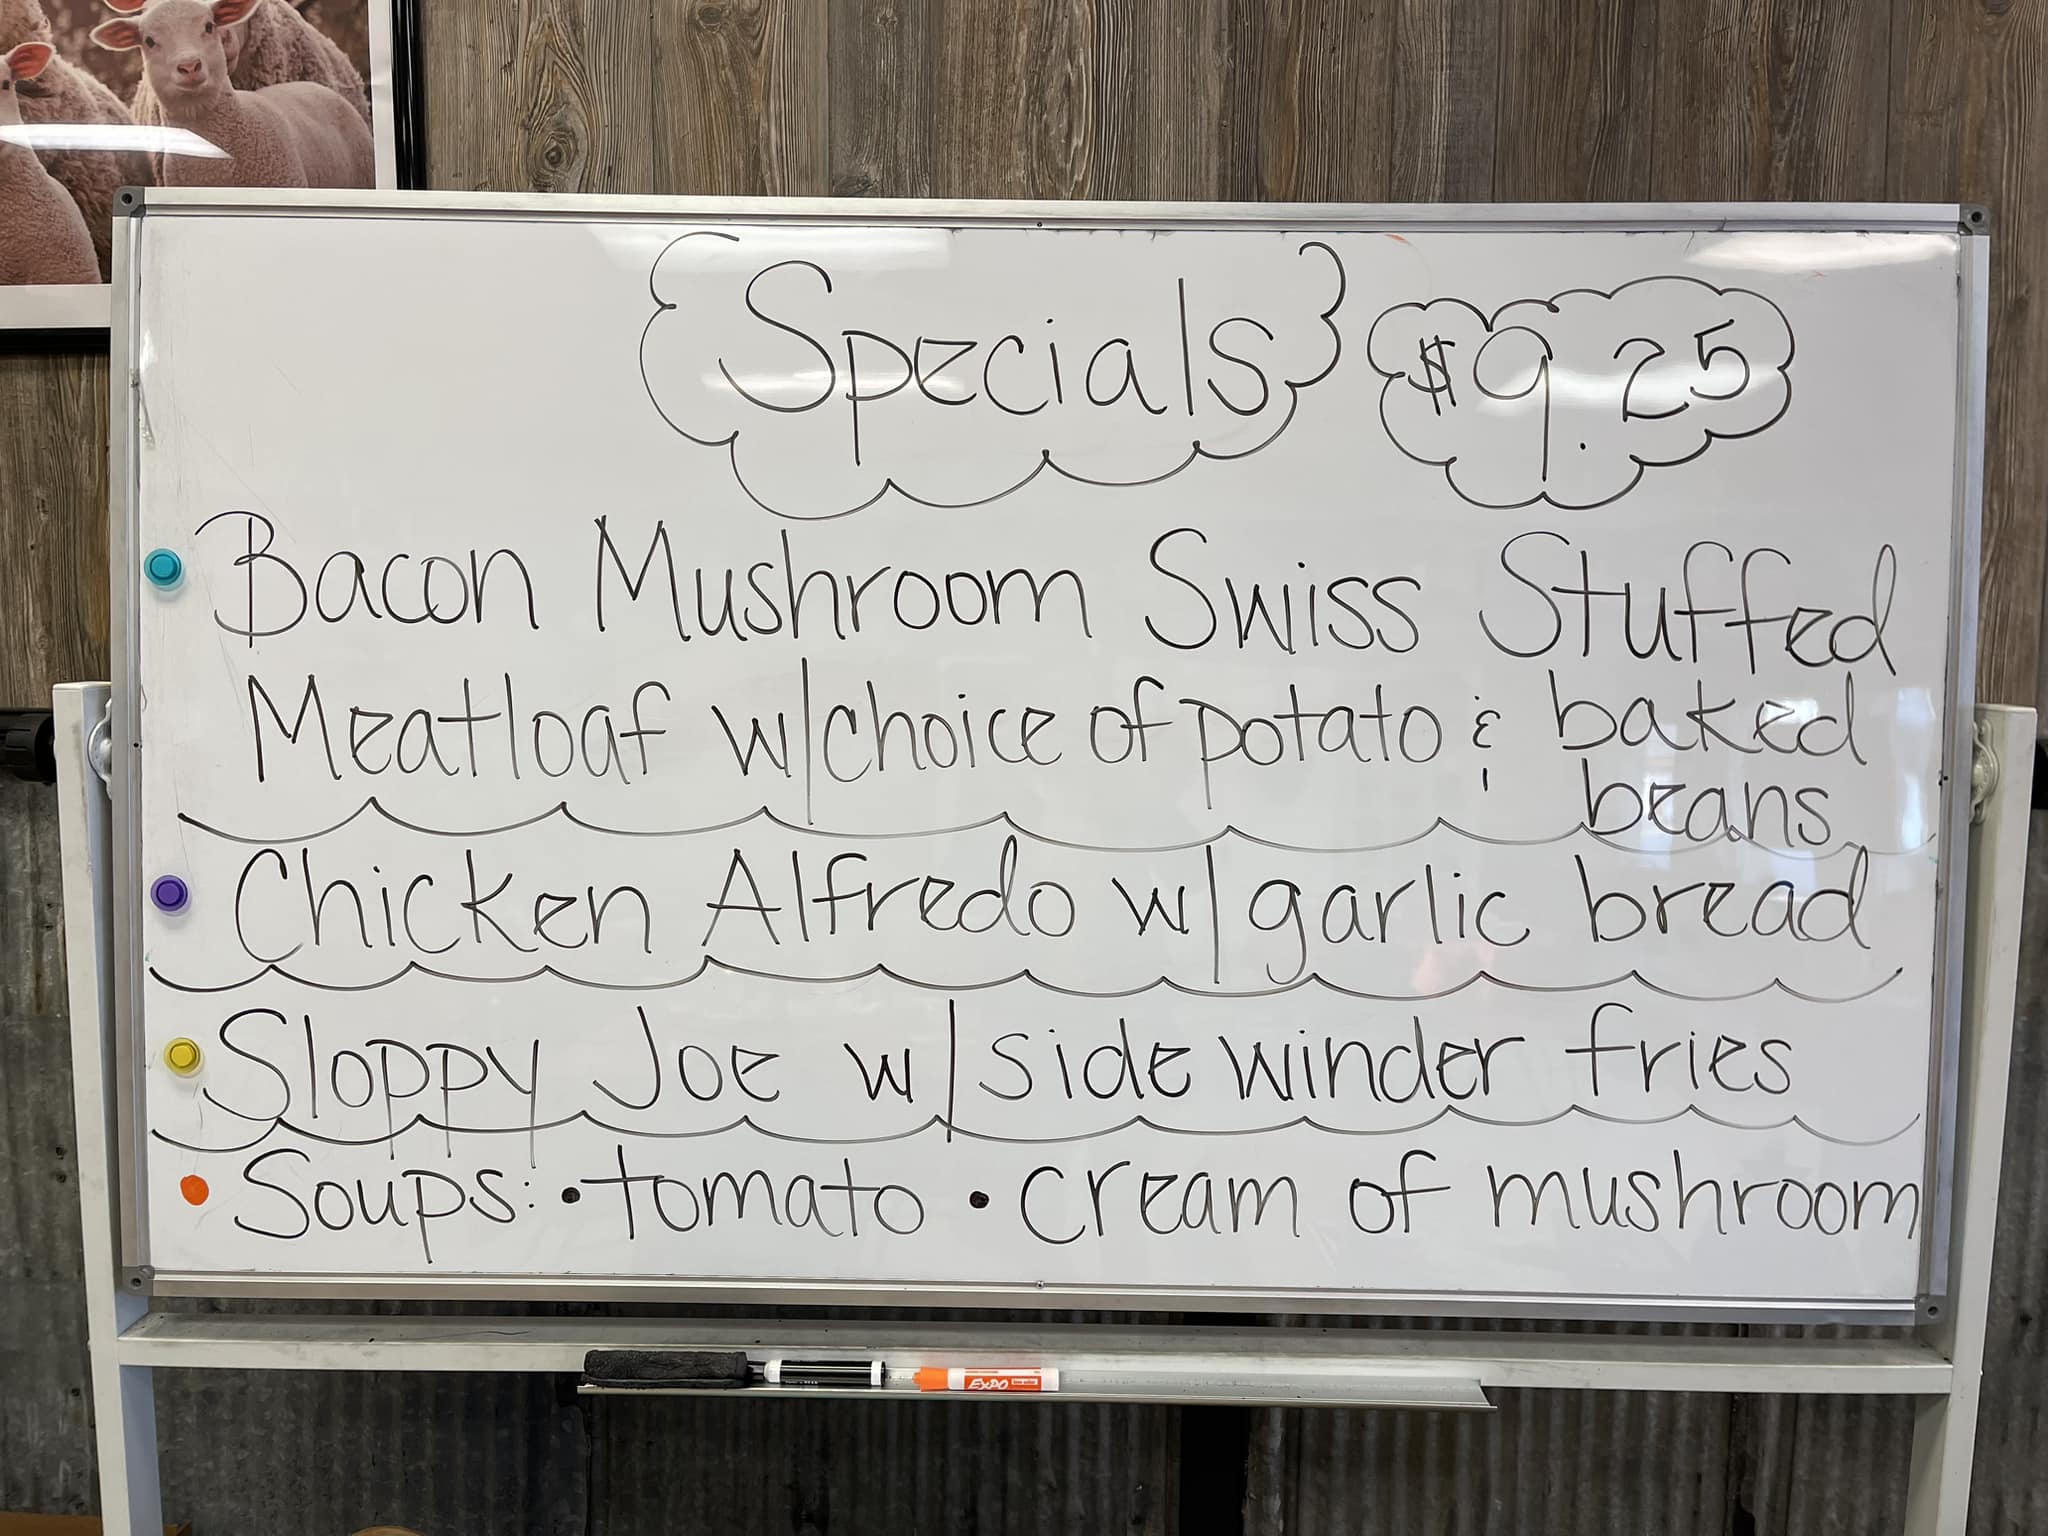 Specials $9.25
Bacon Mushroom Swiss Stuffed
Meatloaf w/choice of potato & baked
beans
Chicken Alfredo w/garlic bread
Sloppy Joe w/side winder fries
Soups: • tomato • cream of mushroom
EXPO